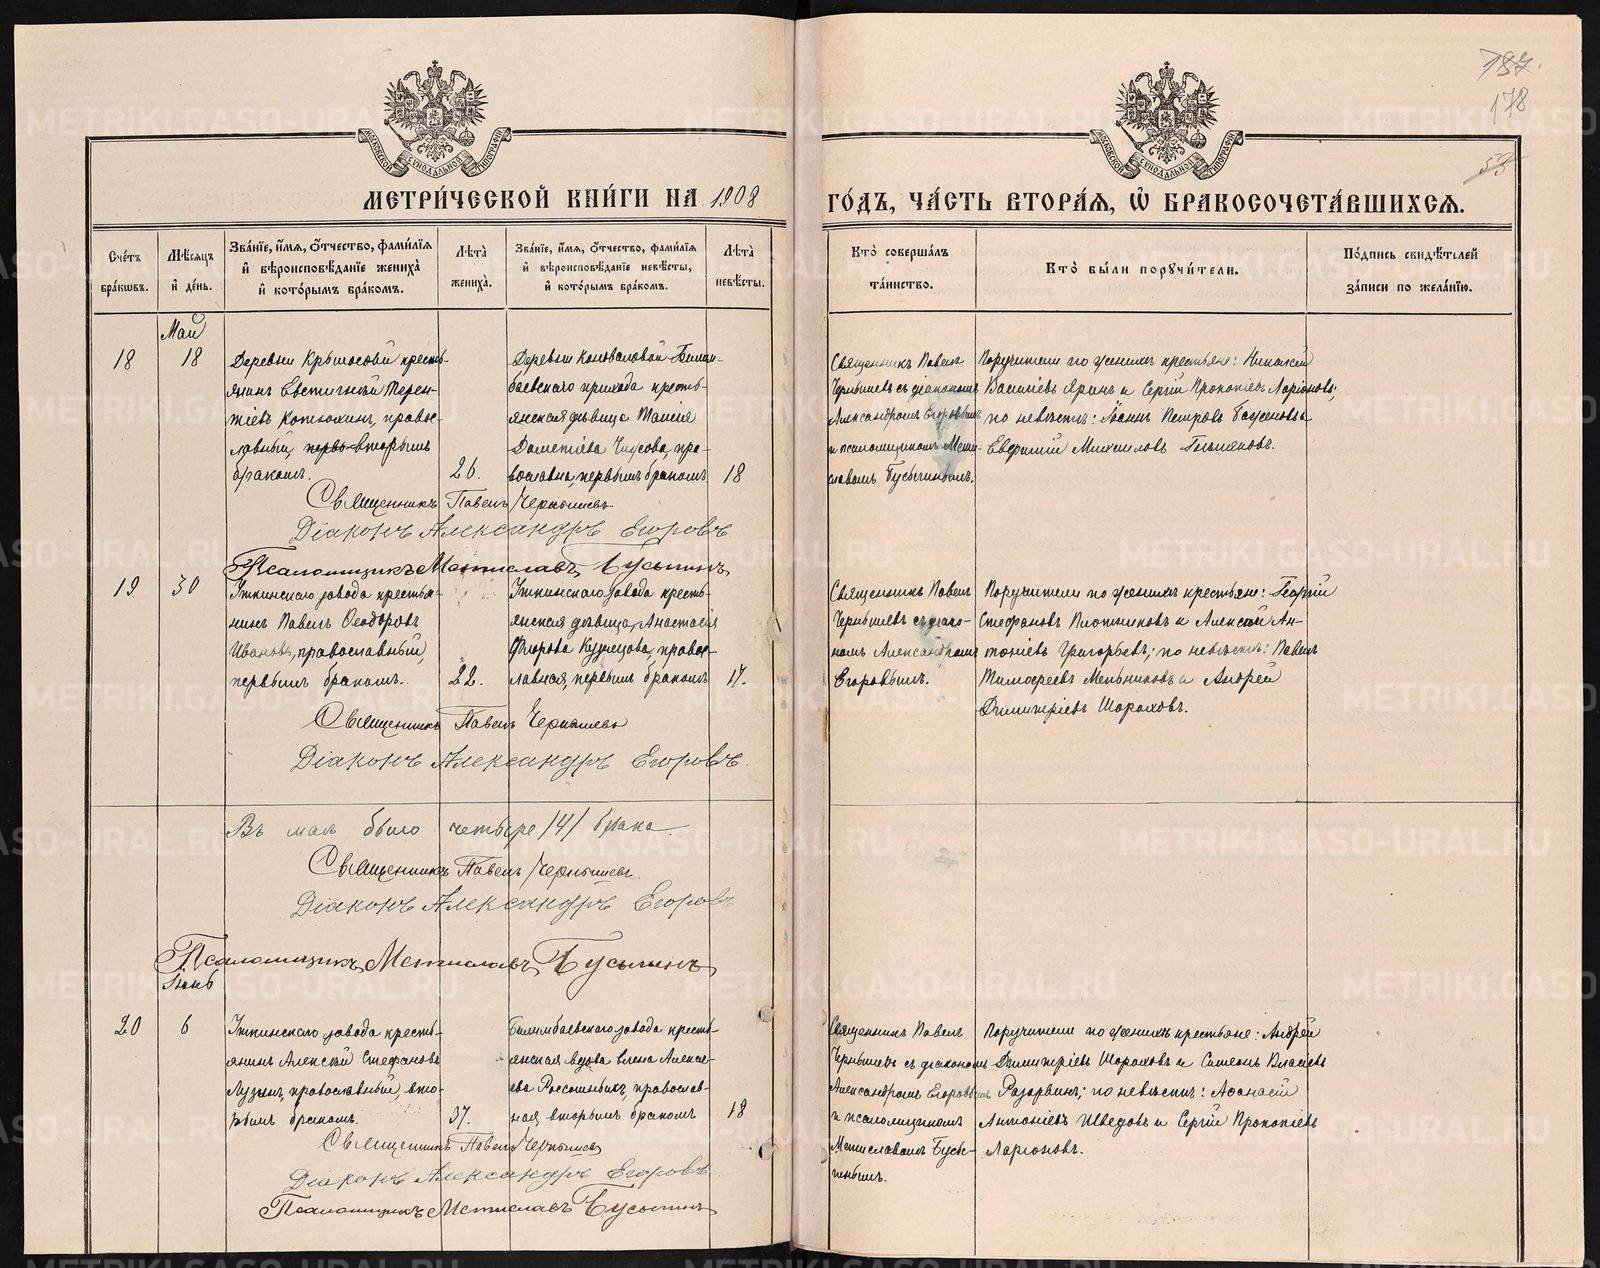 187.
178
58
МОСКОВСКОЙ СѴНОДАЛЬНОЙ ТИПОГРАФІИ
МОСКОВСКОЙ СѴНОДАЛЬНОЙ ТИПОГРАФІИ
МЕТРИ́ЧЕСКОЙ КНИ́ГИ НА 1908 ГО́ДЪ, ЧА́СТЬ ВТОРА́Я, Ѡ҆ БРАКОСОЧЕТА́ВШИХСЯ.
Сче́тъ бра́кѡвъ.
Мѣ́сяцъ и҆ де́нь.
Зва́нїе, и҆́мя, ѻ҆́тчество, фами́лїя и҆ вѣроисповѣ́данїе жениха̀ и҆ кото́рымъ бра́комъ.
Лѣ́та жениха̀.
Зва́нїе, и҆́мя, ѻ҆́тчество, фами́лїя и҆ вѣроисповѣ́данїе невѣ́сты, и҆ кото́рымъ бра́комъ.
Лѣ́та невѣ́сты.
Кто̀ соверша́лъ та́инство.
Кто̀ бы́ли порꙋчи́тели.
По́дпись свидѣ́телей за́писи по жела́нїю.
Май
18
18
Деревни Крылосовой кресть-
янинъ Евстигней Терен-
тіевъ Котюхинъ, право-
славный, перво-вторымъ
бракомъ.
26.
Деревни Коноваловой Билим-
баевскаго прихода кресть-
янская дѣвица Таисія
Дометіева Чусова, пра-
вославна, первымъ бракомъ
18
Священникъ Павелъ
Чернышевъ съ діакономъ
Александромъ Егоровымъ
и псаломщикомъ Мсти-
славомъ Бусыгинымъ.
Поручители по женихѣ крестьяне: Николай
Василіевъ Яринъ и Сергій Прокопіевъ Ларіоновъ;
по невѣстѣ: Іоаннъ Петровъ и
Евфимій Михаиловъ
Священникъ Павелъ Чернышевъ
Діаконъ Александръ Егоровъ
Псаломщикъ Мстиславъ Бусыгинъ
19
30
Уткинскаго завода крестья-
нинъ Павелъ Ѳеодоровъ
Ивановъ, православный,
первымъ бракомъ.
22.
Уткинскаго завода кресть-
янская дѣвица Анастасія
Флорова Кузнецова, право-
славная, первымъ бракомъ
17.
Священникъ Павелъ
Чернышевъ съ діако-
номъ Александромъ
Егоровымъ.
Поручители по женихѣ крестьяне: Георгій
Стефановъ Плотниковъ и Алексей Ан-
тоніевъ Григорьевъ; по невѣстѣ: Павелъ
Тимофеевъ Мельниковъ и Андрей
Димитріевъ Шораховъ.
Священникъ Павелъ Чернышевъ
Діаконъ Александръ Егоровъ.
Въ маѣ было четыре /4/ брака.
Священникъ Павелъ Чернышевъ.
Діаконъ Александръ Егоровъ
Псаломщикъ Мстиславъ Бусыгинъ
Іюнь
20
6
Уткинскаго завода кресть-
янинъ Алексей Стефановъ
Лузинъ, православный, вто-
рымъ бракомъ.
37.
Билимбаевскаго завода кресть-
янская вдова Елена Алексе-
ева Россошныхъ, православ-
ная, вторымъ бракомъ
18
Священникъ Павелъ
Чернышевъ съ діакономъ
Александромъ Егоровымъ
и псаломщикомъ
Мстиславомъ Бусы-
гинымъ.
Поручители по женихѣ крестьяне: Андрей
Димитріевъ Шораховъ и Симеонъ Власіевъ
Разорвинъ; по невѣстѣ: Аѳанасій
Антоніевъ Шведовъ и Сергій Прокопіевъ
Ларіоновъ.
Священникъ Павелъ Чернышевъ
Діаконъ Александръ Егоровъ
Псаломщикъ Мстиславъ Бусыгинъ
METRIKI.GASO-URAL.RU